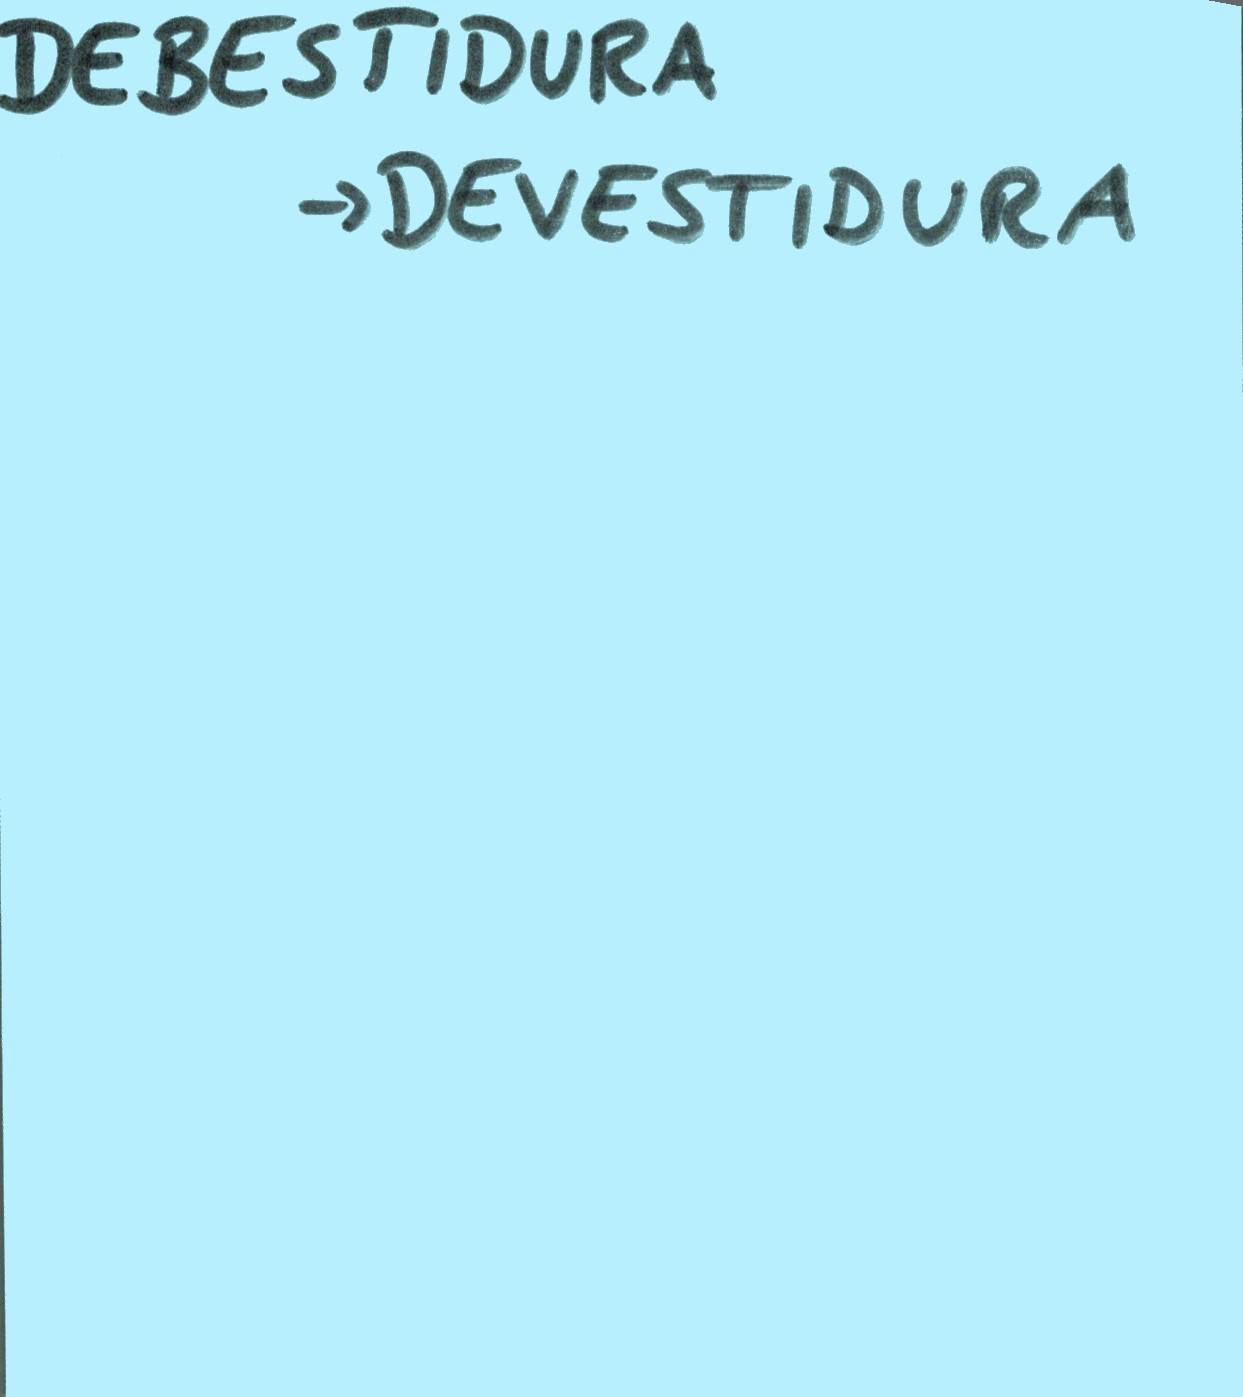 DEBESTIDURA
→DEVESTIDURA